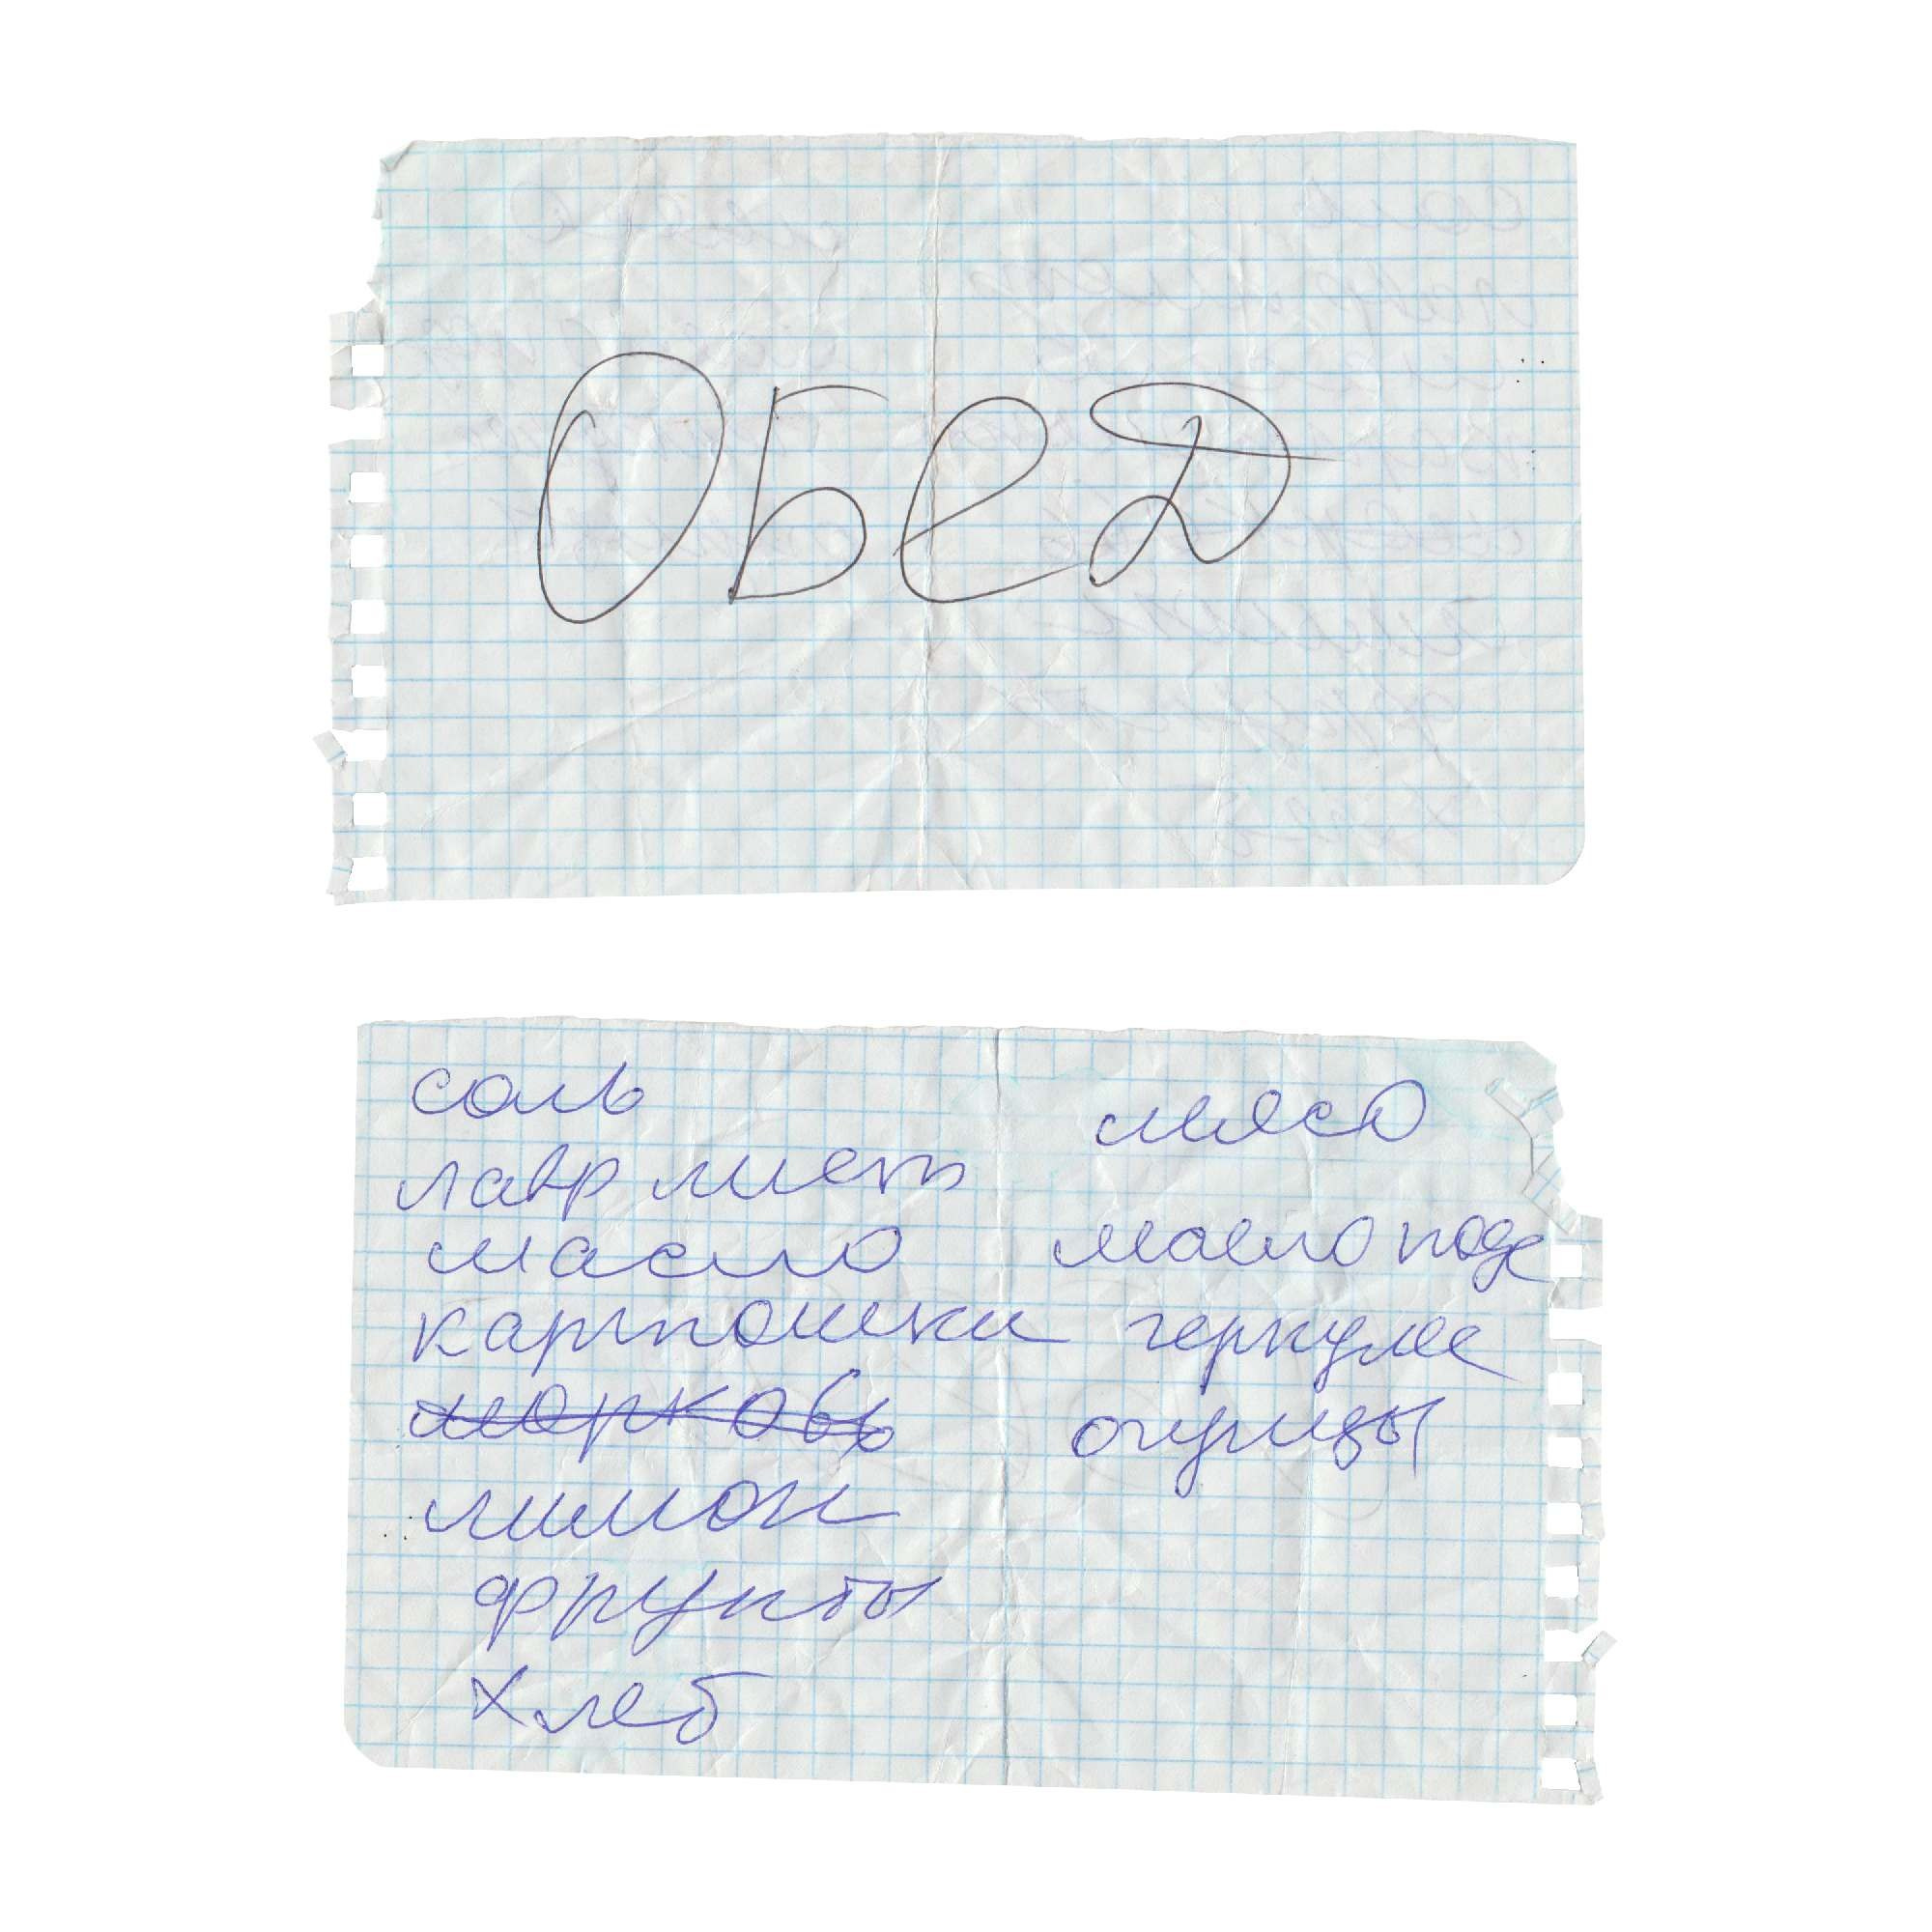 ОБеД
соль
лавр лист
масло
картошки
морковь
лимон
фрукты
хлеб
мясо
масло подс
геркулес
огурцы